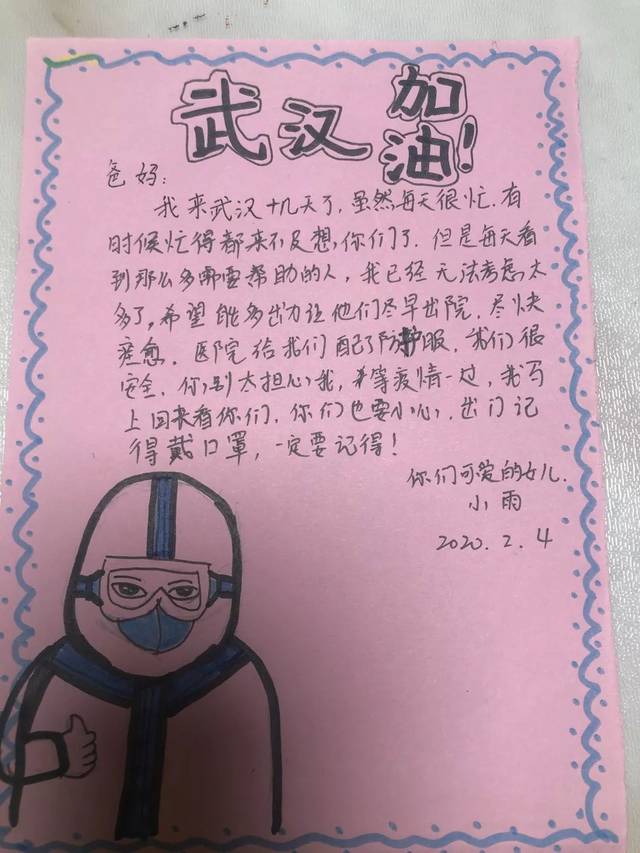 武汉加油!
爸妈:
我来武汉十几天了,虽然每天很忙.有
时候忙得都来不及想,你们了.但是每天看
到那么多需要帮助的人,我已经无法考虑太
多了,希望能多出力让他们尽早出院.尽快
痊愈.医院给我们配了防护服,我们很
安全.你别太担心我,等疫情一过,我马
上回来看你们.你们也要小心,出门记
得戴口罩,一定要记得!
你们可爱的女儿.
小雨
2020.2.4